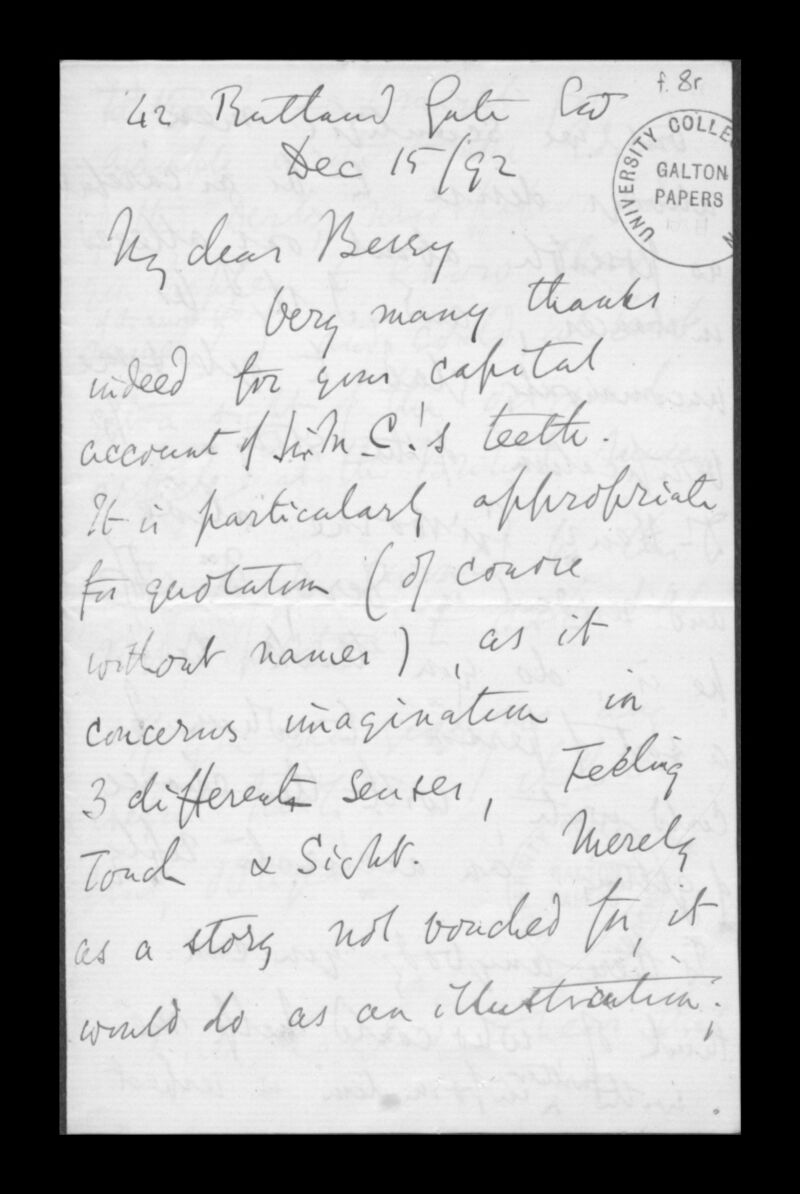 f. 8r
UNIVERSITY COLLE
GALTON
PAPERS
N
42 Rutland Gate SW
Dec 15/92
My dear Berry
Very many thanks
indeed for your capital
account of Sir M. C.'s teeth.
It is particularly appropriate
for quotation (of course
without names), as it
concerns imagination in
3 different senses, Feeling
Touch & Sight. Merely
as a story not vouched for, it
would do as an illustration;